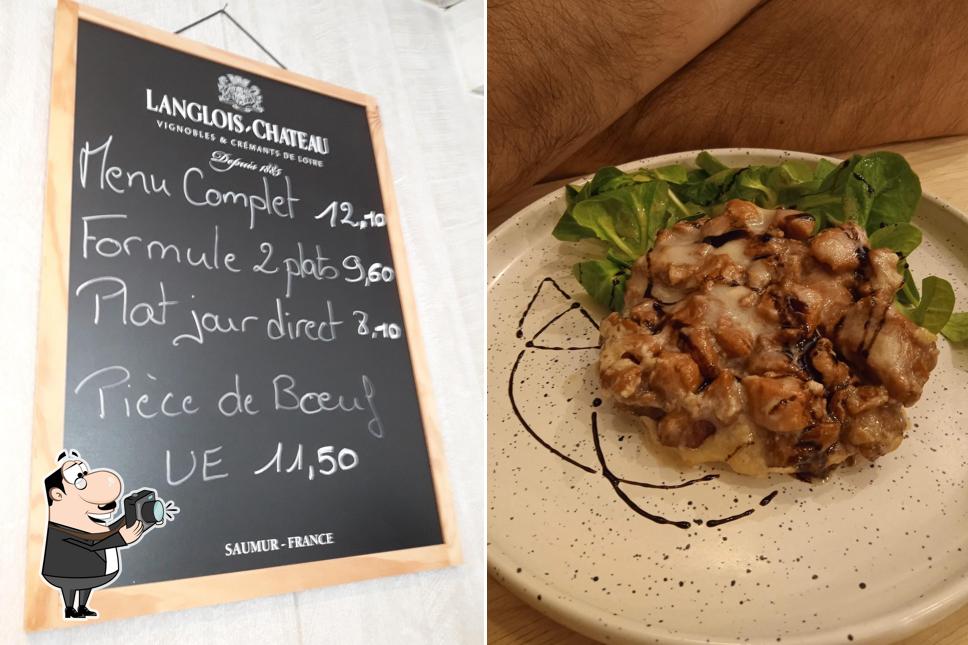 LANGLOIS-CHATEAU
VIGNOBLES & CRÉMANTS DE LOIRE
Depuis 1885
Menu Complet 12,10
Formule 2 plats 9,60
Plat jour direct 8,10
Pièce de Bœuf
UE 11,50
SAUMUR - FRANCE